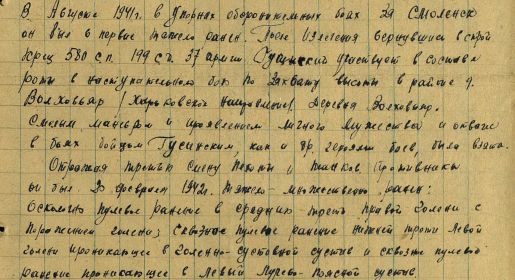 В Августе 1941г. в упорных оборонительных боях за Смоленск
он был в первые тяжело ранен. После излечения вернувшись в строй
580 с.п. 199 с.д. 37 армии Гусинский участвует в составе
роты в наступательном бою по захвату высоты в районе д.
Волховьяр (Харьковское направление) Деревня Волховьяр.
Смелым манёвром и проявлением личного мужества и отваге
в боях бойцом Гусинским, как и др. героями боев, была взята.
Отражая третью смену пехоты и танков Противника
он был 23 февраля 1942г. тяжело-множественно ранен:
Осколочно пулевое ранение в средних треть правой голени с
Поражением голени; сквозное пулевое ранение нижней трети левой
голени проникающее в Голенно-суставной сустав и сквозное пулевое
ранение проникающее в левый Лучево-Поясной сустав